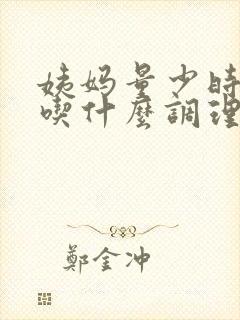 姨妈量少時
喫什麼調理
鄭金冲